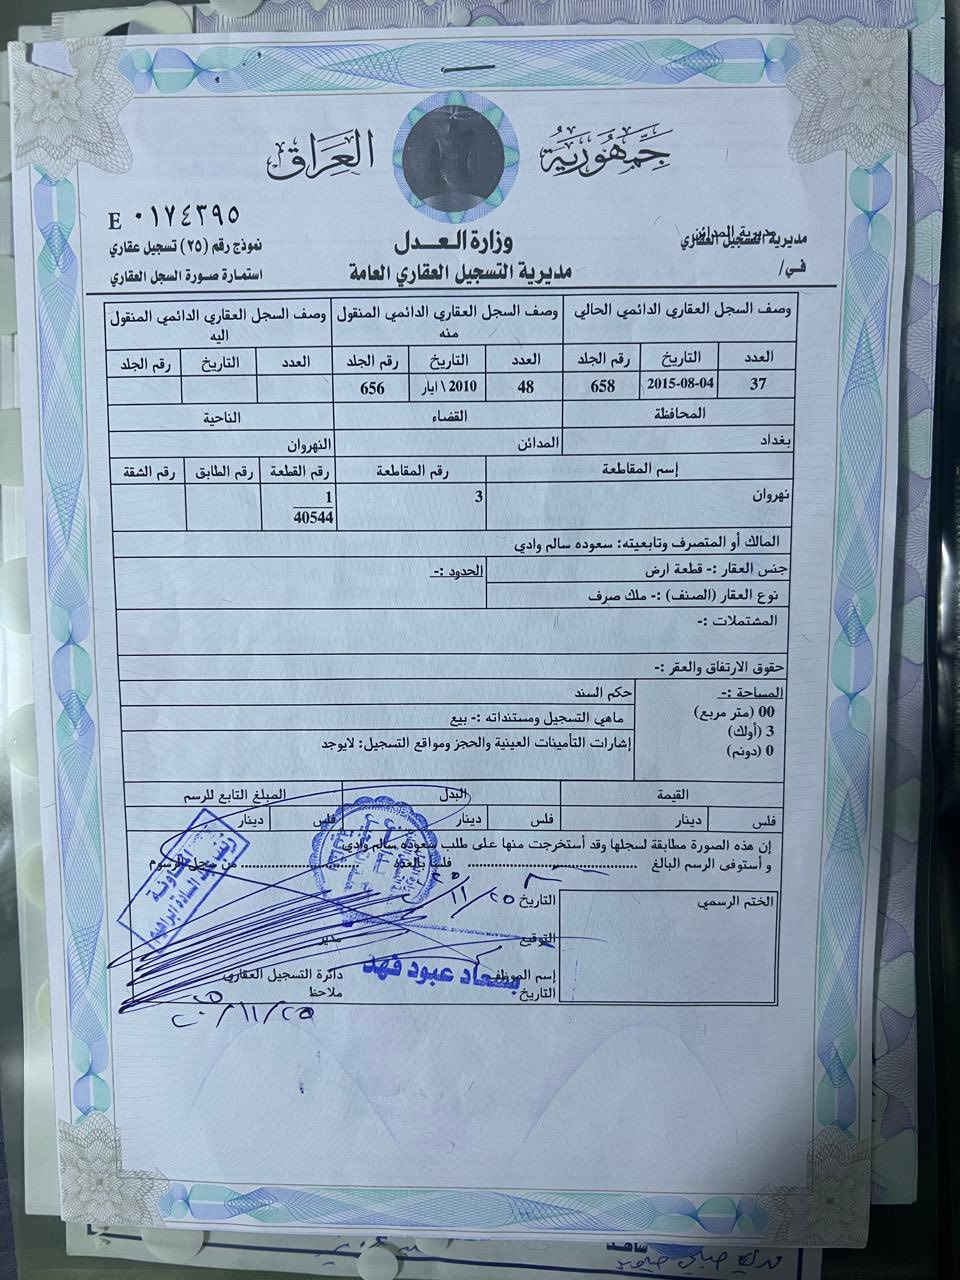 جمهورية العراق
E ٠١٧٤٣٩٥
وزارة العدل
مديرية المدائن
مديرية التسجيل العقاري
نموذج رقم (٢٥) تسجيل عقاري
في/
مديرية التسجيل العقاري العامة
استمارة صورة السجل العقاري
وصف السجل العقاري الدائمي الحالي
وصف السجل العقاري الدائمي المنقول منه
وصف السجل العقاري الدائمي المنقول اليه
العدد التاريخ رقم الجلد العدد التاريخ رقم الجلد العدد التاريخ رقم الجلد
37 2015-08-04 658 48 2010\ ايار 656
المحافظة القضاء الناحية
بغداد المدائن النهروان
إسم المقاطعة رقم المقاطعة رقم القطعة رقم الطابق رقم الشقة
نهروان 3 1
40544
المالك أو المتصرف وتابعيته: سعوده سالم وادي
جنس العقار :- قطعة ارض الحدود :-
نوع العقار (الصنف) :- ملك صرف
المشتملات :-
حقوق الارتفاق والعقر :-
المساحة :- حكم السند
00 (متر مربع) ماهي التسجيل ومستنداته :- بيع
3 (أولك) إشارات التأمينات العينية والحجز ومواقع التسجيل: لايوجد
0 (دونم)
القيمة البدل المبلغ التابع للرسم
فلس دينار فلس دينار فلس دينار
إن هذه الصورة مطابقة لسجلها وقد أستخرجت منها على طلب سعوده سالم وادي
و أستوفى الرسم البالغ .......... فلس بالعدد .......... من سجل الرسوم
الختم الرسمي
التاريخ
التوقيع مدير
إسم الموظف سعاد عبود فهد دائرة التسجيل العقاري
التاريخ ملاحظ